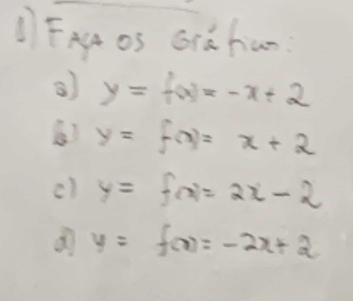 1) FAÇA OS Gráficos:
a) y = f(x) = -x + 2
b) y = f(x) = x + 2
c) y = f(x) = 2x - 2
d) y = f(x) = -2x + 2